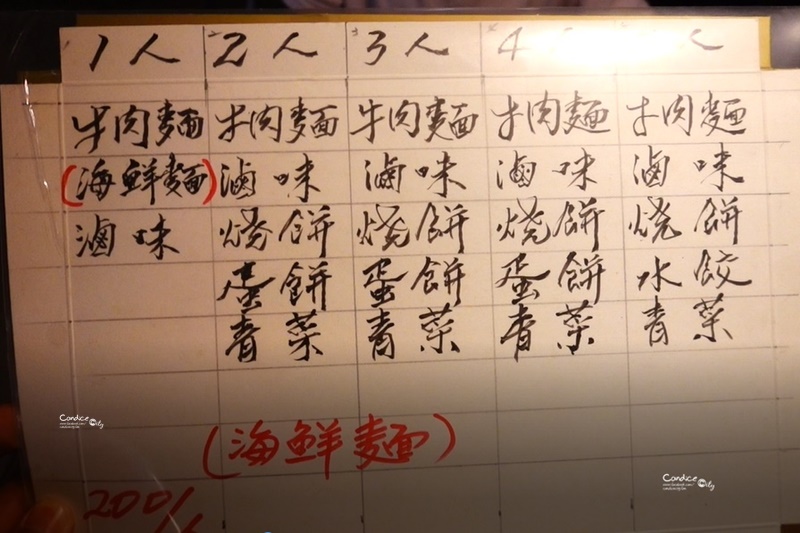 1人 2人 3人 4 人
牛肉麵 牛肉麵 牛肉麵 牛肉麵 牛肉麵
(海鮮麵) 滷味 滷味 滷味 滷味
滷味 燒餅 燒餅 燒餅 燒餅
蛋餅 蛋餅 蛋餅 水餃
青菜 青菜 青菜 青菜
(海鮮麵)
200/
Candice
Candice